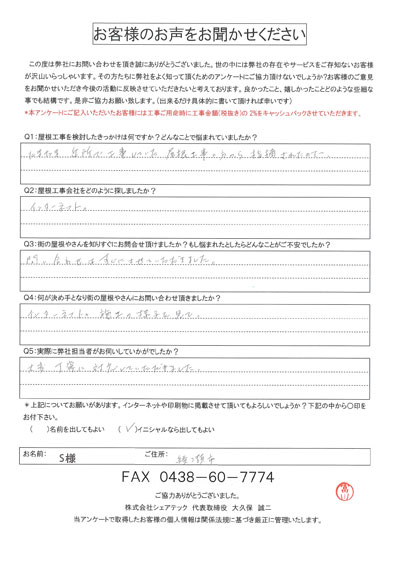 お客様のお声をお聞かせください
この度は弊社にお問い合わせを頂き誠にありがとうございました。世の中には弊社の存在やサービスをご存知ないお客様
が沢山いらっしゃいます。その方たちに弊社をよく知って頂くためのアンケートにご協力頂けないでしょうか?お客様のご意見
をお聞かせいただき今後の活動に反映させていただきたいと考えております。良かったこと、嬉しかったことどのような些細な
事でも結構です。是非ご協力お願い致します。(出来るだけ具体的に書いて頂ければ幸いです)
*本アンケートにご記入いただいたお客様には工事ご用命時に工事金額(税抜き)の2%をキャッシュバックさせていただきます。
Q1:屋根工事を検討したきっかけは何ですか?どんなことで悩まれていましたか?
たまたま 近所で工事していた 屋根工事の方から 指摘されたので。
Q2:屋根工事会社をどのように探しましたか?
インターネット。
Q3:街の屋根やさんを知りすぐにお問合せ頂けましたか?もし悩まれたとしたらどんなことがご不安でしたか?
問い合わせはすぐにさせていただきました。
Q4:何が決め手となり街の屋根やさんにお問い合わせ頂きましたか?
インターネットの 施工の様子を見て。
Q5:実際に弊社担当者がお伺いしていかがでしたか?
丁寧に対応していただきました。
*上記についてお願いがあります。インターネットや印刷物に掲載させて頂いてもよろしいでしょうか?下記の中から〇印を
お付下さい。
( )名前を出してもよい (✓)イニシャルなら出してもよい
お名前: S様 ご住所: 綾瀬市
FAX 0438-60-7774
ご協力ありがとうございました。
株式会社シェアテック 代表取締役 大久保 誠二
当アンケートで取得したお客様の個人情報は関係法規に基づき厳正に管理いたします。